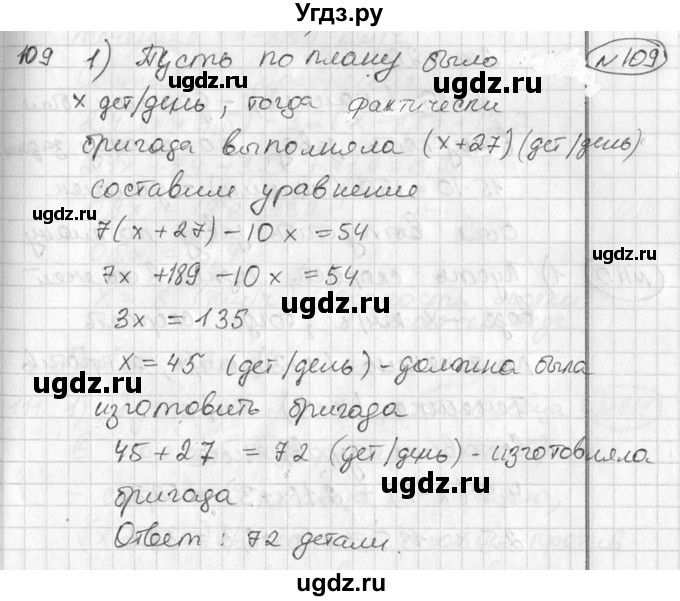 Угдз.ру
109 1) Пусть по плану было №109
x дет/день, тогда фактически
бригада выполняла (x+27)(дет/день)
составим уравнение
7(x+27)-10x=54
7x+189-10x=54
3x=135
x=45 (дет/день)-должна была
изготовить бригада
45+27=72 (дет/день)-изготовляла
бригада.
Ответ: 72 детали.
ugdz.ru
ugdz.ru
ugdz.ru
ugdz.ru
ugdz.ru
ugdz.ru
ugdz.ru
ugdz.ru
ugdz.ru
ugdz.ru
ugdz.ru